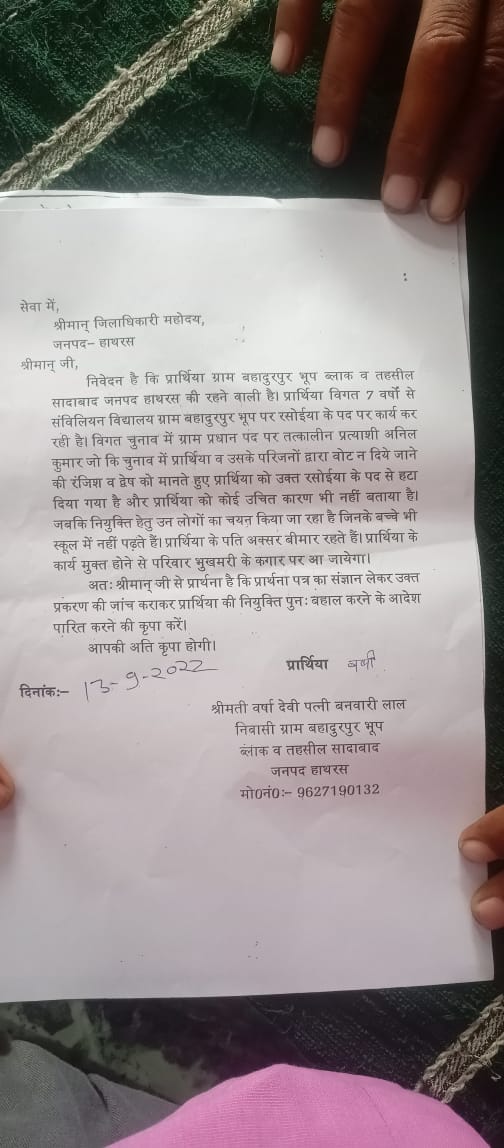 सेवा में,
श्रीमान् जिलाधिकारी महोदय,
जनपद- हाथरस
श्रीमान् जी,
निवेदन है कि प्रार्थिया ग्राम बहादुरपुर भूप ब्लाक व तहसील
सादाबाद जनपद हाथरस की रहने वाली है। प्रार्थिया विगत 7 वर्षों से
संविलियन विद्यालय ग्राम बहादुरपुर भूप पर रसोईया के पद पर कार्य कर
रही है। विगत चुनाव में ग्राम प्रधान पद पर तत्कालीन प्रत्याशी अनिल
कुमार जो कि चुनाव में प्रार्थिया व उसके परिजनों द्वारा वोट न दिये जाने
की रंजिश व द्वेष को मानते हुए प्रार्थिया को उक्त रसोईया के पद से हटा
दिया गया है और प्रार्थिया को कोई उचित कारण भी नहीं बताया है।
जबकि नियुक्ति हेतु उन लोगों का चयन किया जा रहा है जिनके बच्चे भी
स्कूल में नहीं पढ़ते हैं। प्रार्थिया के पति अक्सर बीमार रहते हैं। प्रार्थिया के
कार्य मुक्त होने से परिवार भुखमरी के कगार पर आ जायेगा।
अतः श्रीमान् जी से प्रार्थना है कि प्रार्थना पत्र का संज्ञान लेकर उक्त
प्रकरण की जांच कराकर प्रार्थिया की नियुक्ति पुनः बहाल करने के आदेश
पारित करने की कृपा करें।
आपकी अति कृपा होगी।
दिनांक:- 13-9-2022
प्रार्थिया वर्षा
श्रीमती वर्षा देवी पत्नी बनवारी लाल
निवासी ग्राम बहादुरपुर भूप
ब्लाक व तहसील सादाबाद
जनपद हाथरस
मो0नं0:- 9627190132